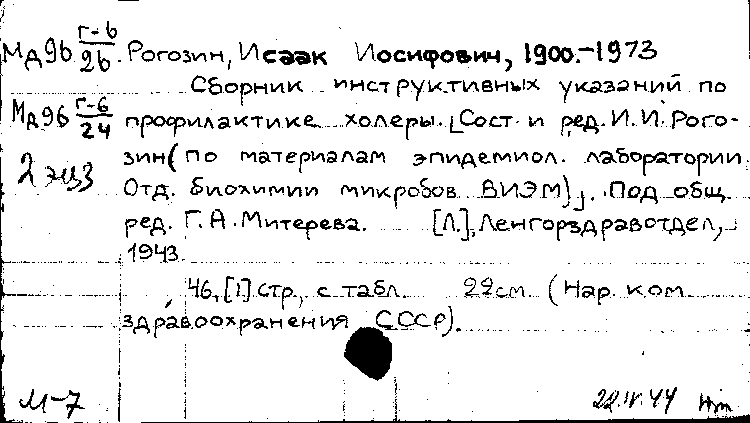 Мд96 г-6/26. Рогозин, Исаак Иосифович, 1900.-1973
Сборник инструктивных указаний по
Мд96 г-6/24 профилактике холеры. [Сост. и ред. И. И. Рого-
2 экз зин (по материалам эпидемиол. лаборатории
Отд. биохимии микробов ВИЭМ)]. Под общ.
ред. Г. А. Митерева. [Л.], Ленгорздравотдел,
1943.
46, [1] стр., с табл. 22 см. (Нар. ком.
здравоохранения СССР).
М-7 22.IV.44